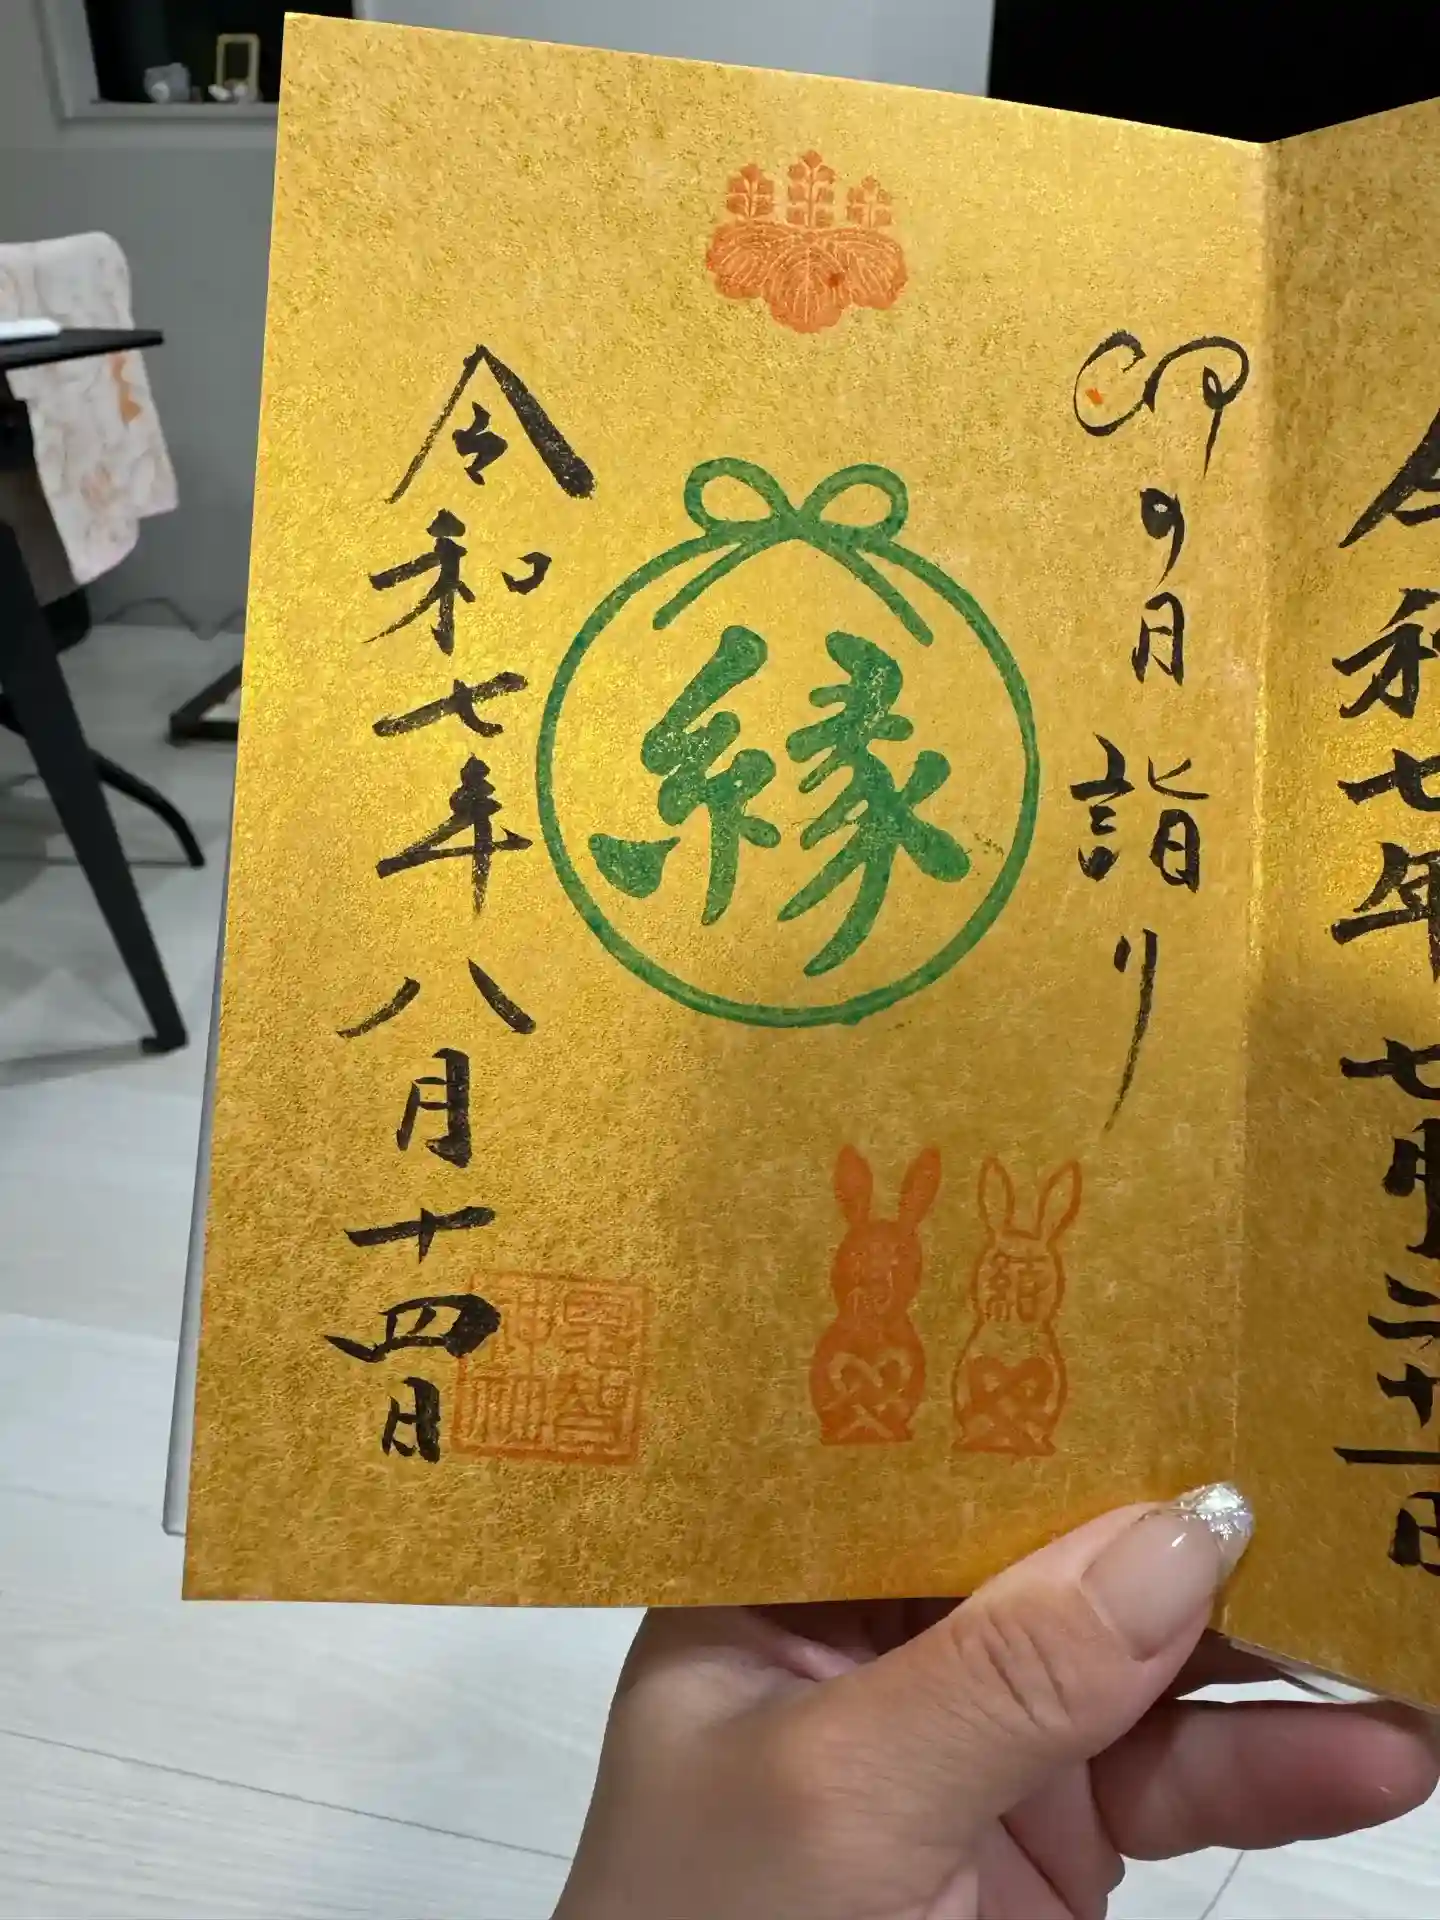 令和七年七月二十一日
卯の月詣り
縁
結
令和七年八月十四日